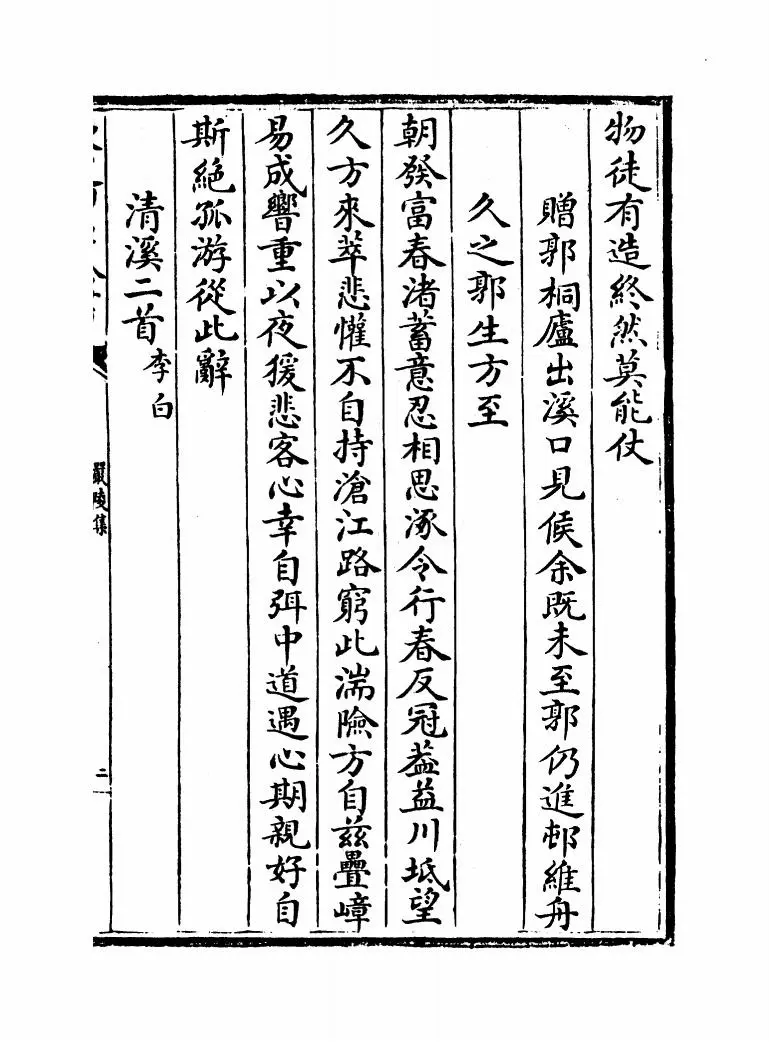 物徒有造終然莫能仗
贈郭桐廬出溪口見候余既未至郭仍進邨維舟
久之郭生方至
朝發富春渚蓄意忍相思涿令行春反冠葢益川坻望
久方來萃悲懽不自持滄江路窮此湍險方自兹疊嶂
易成響重以夜猨悲客心幸自弭中道遇心期親好自
斯絶孤游從此辭
清溪二首李白
嚴陵集
二